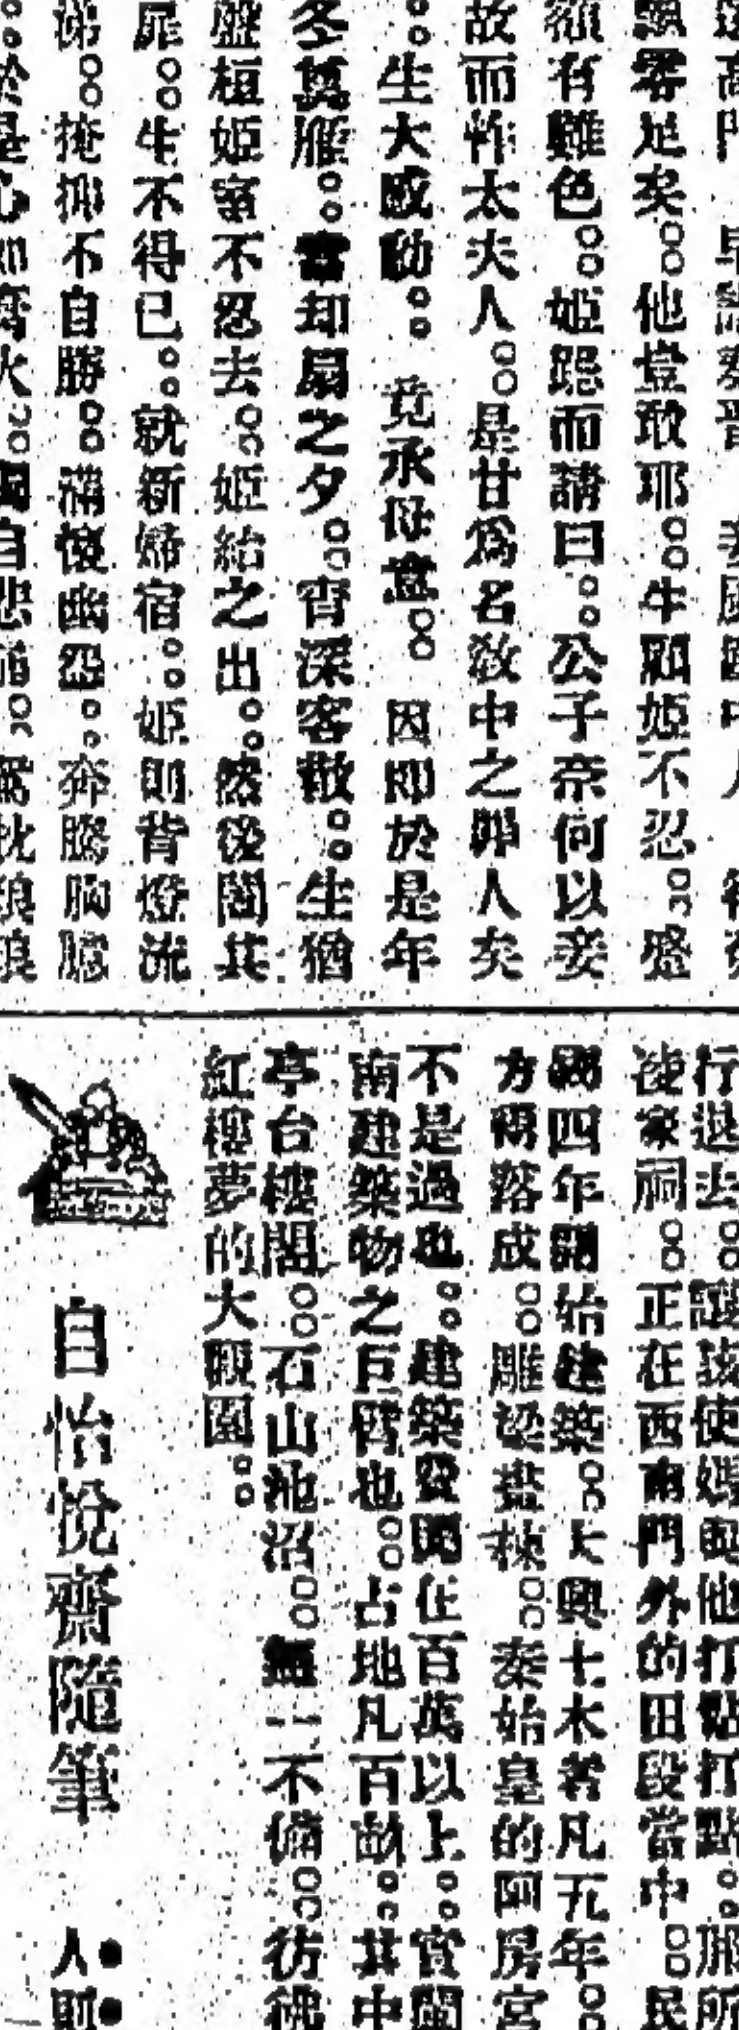 飄零足矣。。他豈敢耶。。生顧姬不忍。。盛
額有難色。。姬跽而請曰。。公子奈何以妾
故而忤太夫人。。是甘為名教中之罪人矣
。。生大感動。。竟承母意。。因即於是年
冬奠雁。。當却扇之夕。。宵深客散。。生猶
盤桓姬室不忍去。。姬紿之出。。然後闔其
扉。。生不得已。。就新婦宿。。姬則背燈流
涕。。掩抑不自勝。。滿懷幽怨。。奔騰胸臆
行退去。。讓該使媽與他打點打點。。那所
凌家祠。。正在西南門外的田段當中。。民
國四年開始建築。。大興土木者凡五年。。
方纔落成。。雕梁畫棟。。秦始皇的阿房宮
不是過也。。建築費聞在百萬以上。。實閩
南建築物之巨臂也。。占地凡百畝。。其中
亭台樓閣。。石山池沼。。無一不備。。彷彿
紅樓夢的大觀園。。
自怡悅齋隨筆 人